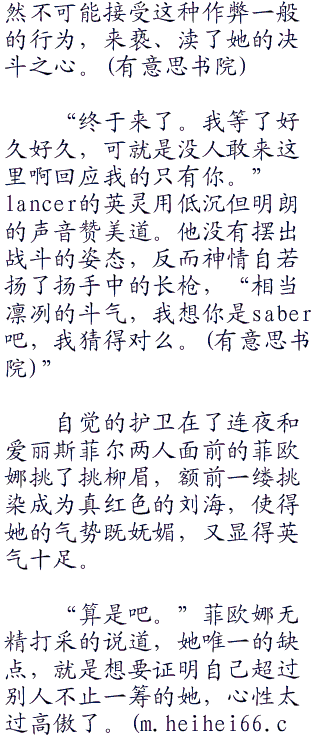 然不可能接受这种作弊一般
的行为，来亵、渎了她的决
斗之心。(有意思书院)
“终于来了。我等了好
久好久，可就是没人敢来这
里啊回应我的只有你。”
lancer的英灵用低沉但明朗
的声音赞美道。他没有摆出
战斗的姿态，反而神情自若
扬了扬手中的长枪，“相当
凛冽的斗气，我想你是saber
吧，我猜得对么。(有意思书
院)”
自觉的护卫在了连夜和
爱丽斯菲尔两人面前的菲欧
娜挑了挑柳眉，额前一缕挑
染成为真红色的刘海，使得
她的气势既妩媚，又显得英
气十足。
“算是吧。”菲欧娜无
精打采的说道，她唯一的缺
点，就是想要证明自己超过
别人不止一筹的她，心性太
过高傲了。(m.heihei66.c